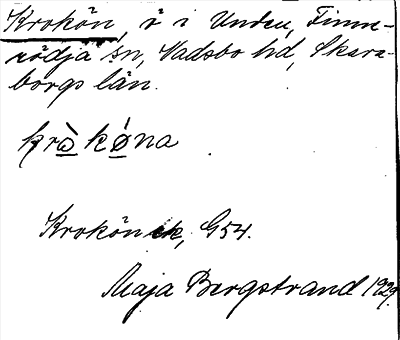 Krokön, ö i Unden, Finne-
rödja sn, Vadsbo hd, Skara-
borgs län.
krò̱kǿ̱na
Krokön ek, G54.
Maja Bergstrand 1929.